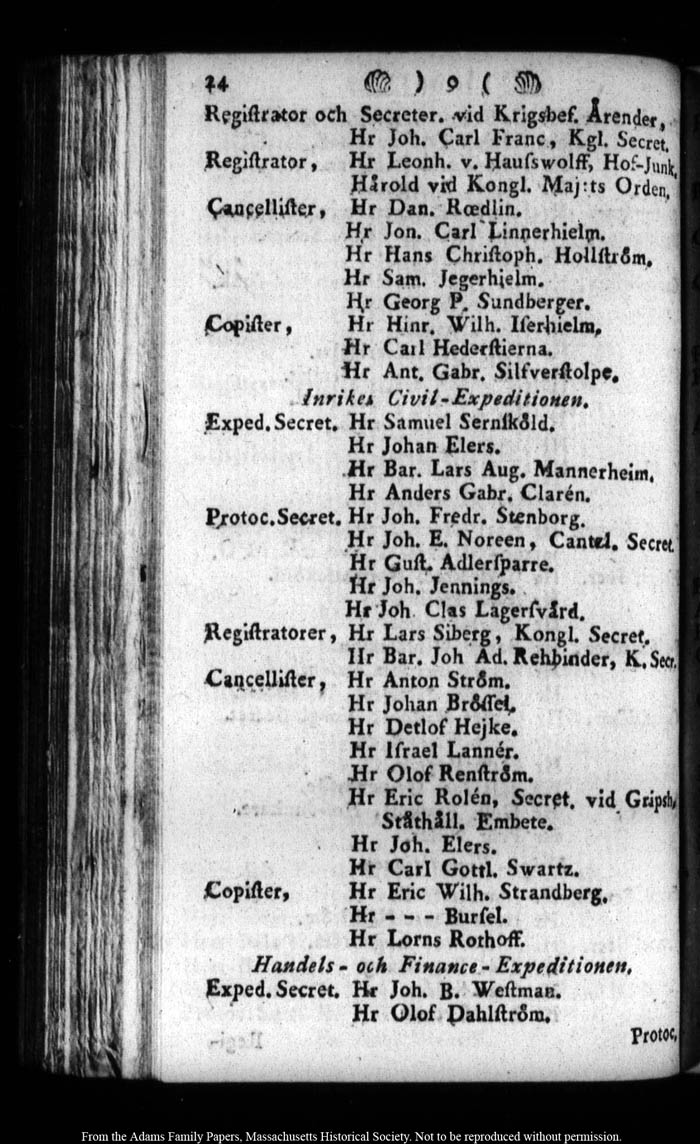 24 ) 9 (
Regiſtrator och Secreter. vid Krigsbef. Årender,
Hr Joh. Carl Franc, Kgl. Secret.
Regiſtrator, Hr Leonh. v. Hauſswolff, Hof-Junk.
Hårold vid Kongl. Maj:ts Orden,
Cançelliſter, Hr Dan. Rœdlin.
Hr Jon. Carl Linnerhielm.
Hr Hans Chriſtoph. Hollſtrôm.
Hr Sam. Jegerhielm.
Hr Georg P. Sundberger.
Copiſter, Hr Hinr. Wilh. Iſerhielm,
Hr Carl Hederſtierna.
Hr Ant. Gabr. Silfverſtolpe.
Inrikes Civil-Expeditionen.
Exped. Secret. Hr Samuel Sernſkôld.
Hr Johan Elers.
Hr Bar. Lars Aug. Mannerheim.
Hr Anders Gabr. Clarén.
Protoc. Secret. Hr Joh. Fredr. Stenborg.
Hr Joh. E. Noreen, Cantzl. Secret.
Hr Guſt. Adlerſparre.
Hr Joh. Jennings.
Hr Joh Clas Lagerſvård.
Regiſtratorer, Hr Lars Siberg, Kongl. Secret.
Hr Bar. Joh Ad. Rehbinder, K. Secr.
Cançelliſter, Hr Anton Strôm.
Hr Johan Brôſſel.
Hr Detlof Hejke.
Hr Iſrael Lannér.
Hr Olof Renſtrôm.
Hr Eric Rolén, Secret. vid Gripsh.
Ståthåll. Embete.
Hr Joh. Elers.
Hr Carl Gottl. Swartz.
Copiſter, Hr Eric Wilh. Strandberg.
Hr - - - Burſel.
Hr Lorns Rothoff.
Handels- och Finance-Expeditionen.
Exped. Secret. Hr Joh. B. Weſtman.
Hr Olof Dahlſtrôm.
Protoc.
From the Adams Family Papers, Massachusetts Historical Society. Not to be reproduced without permission.